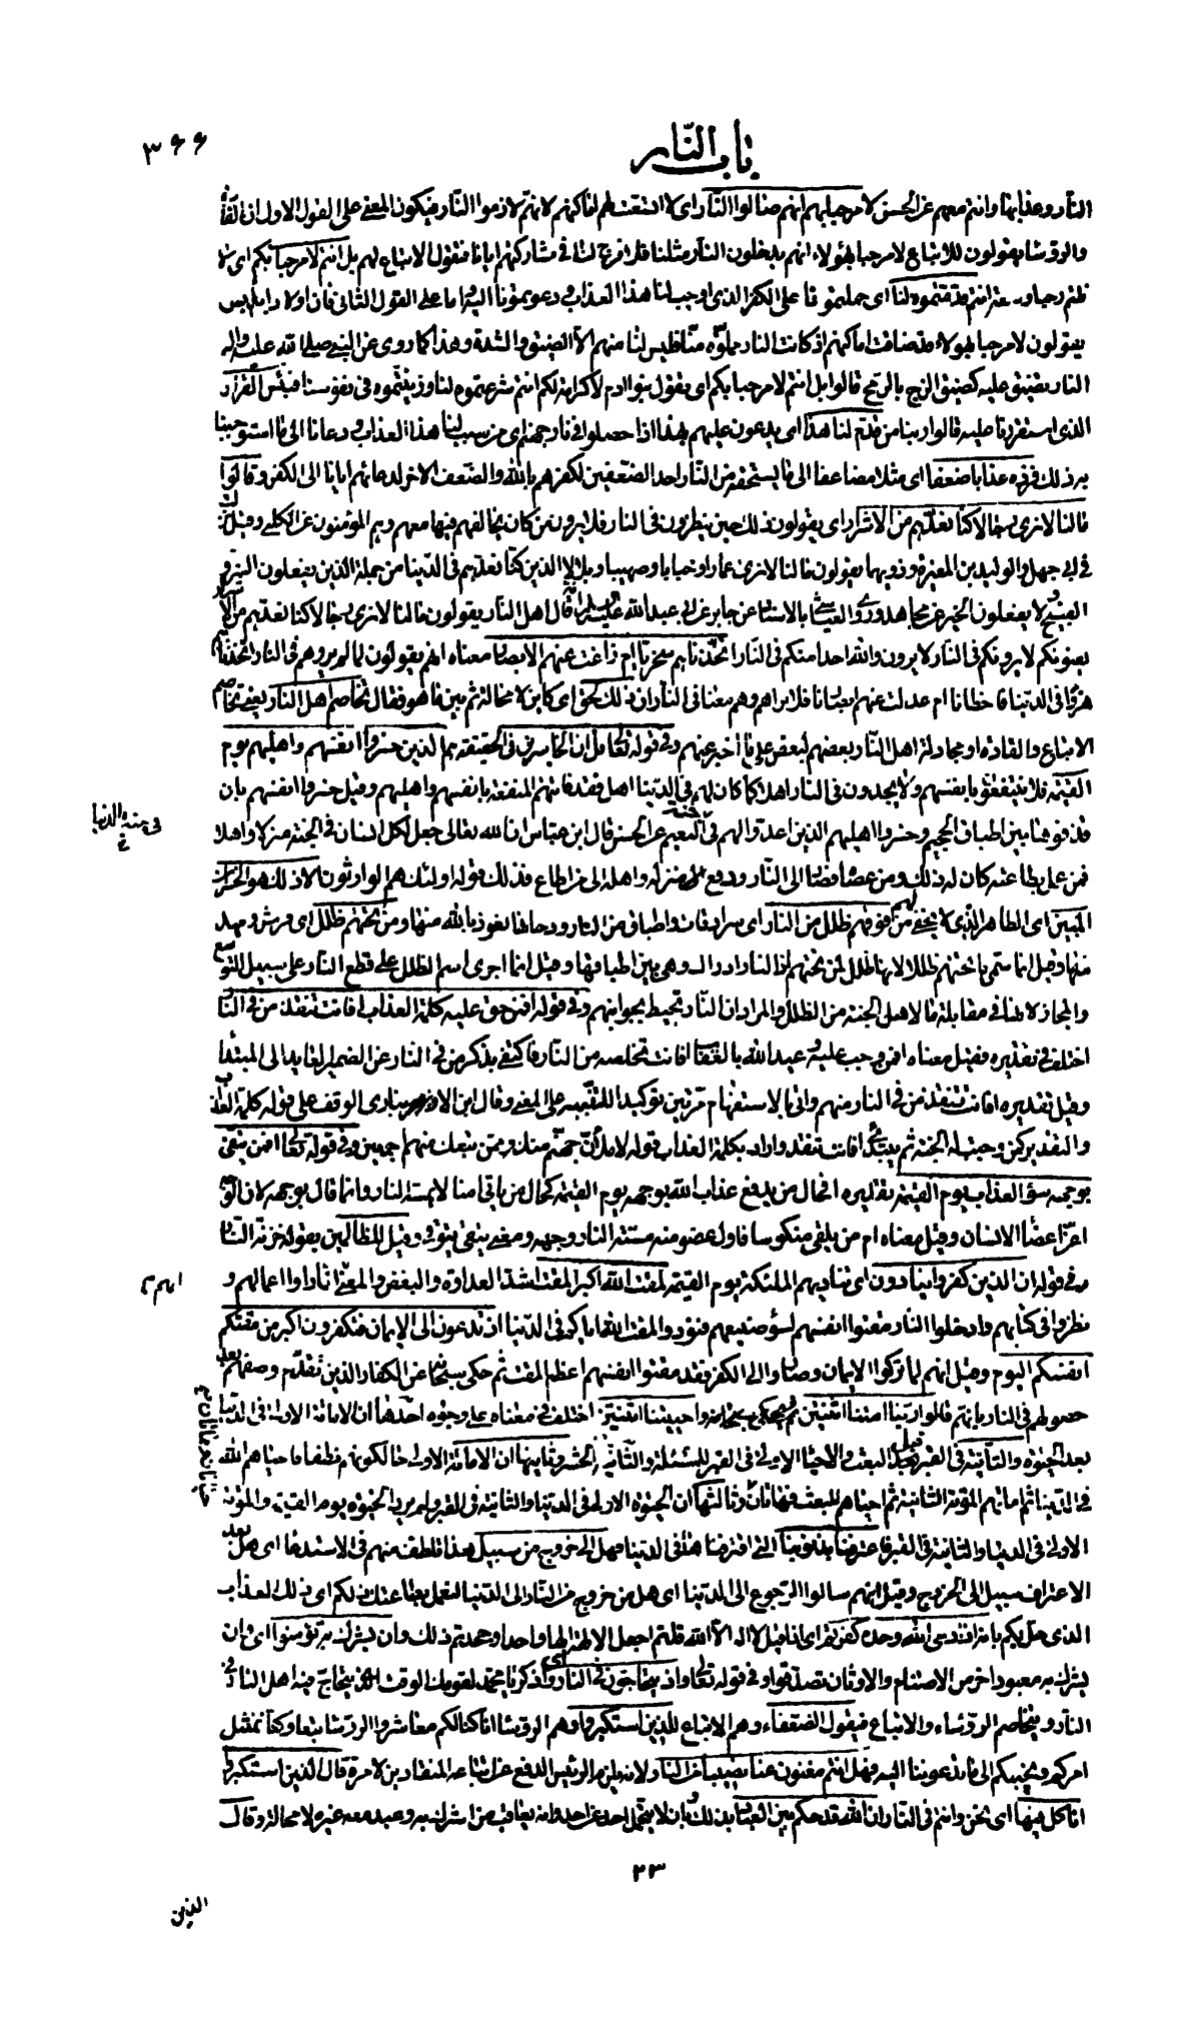 باب النّار
٣٦٦
النّار وعذابها وانتم معهم عن الحسن لا مرحبا بهم انهم صالوا النّار اى لا اتسعت لهم اماكنهم لانهم لازموا النّار فيكون المعنى على القول الاول ان القادة
والرؤساء يقولون للاتباع لا مرحبا بهؤلاء انهم يدخلون النّار مثلنا فلا فرح لنا فى مشاركتهم ايانا فتقول الاتباع لهم بل انتم لا مرحبا بكم اى لا
نلتم رحبا وسعة انتم قدمتموه لنا اى حملتمونا على الكفر الذى اوجب لنا هذا العذاب ودعوتمونا اليه واما على القول الثانى فان اولاد ابليس
يقولون لا مرحبا بهؤلاء قد ضاقت اماكنهم اذ كانت النار مملوّة منّا فليس لنا منهم الا الضيق والشدة وهذا كما روى عن النبى صلى الله عليه واله
النار تضيق عليه كضيق الزج بالرمح قالوا بل انتم لا مرحبا بكم اى يقول بنو ادم لا كرامة لكم انتم شرعتموه لنا وزينتموه فى نفوسنا فبئس القرار
الذى استقررنا عليه قالوا ربنا من قدّم لنا هذا اى يدعون عليهم بهذا اذا حصلوا فى نار جهنم اى من سبب لنا هذا العذاب ودعانا الى ما استوجبنا
به ذلك فزده عذابا ضعفا اى مثلا مضاعفا الى ما يستحقه من النّار احد الضعفين لكفرهم بالله والضعف الاخر لدعائهم ايانا الى الكفر وقالوا
مالنا لا نرى رجالا كنا نعدّهم من الاشرار اى يقولون ذلك حين ينظرون فى النار فلا يرون من كان يخالفهم فيها معهم وهم المؤمنون عن الكلبى وقيل نزلت
فى ابى جهل والوليد بن المغيرة وذويهما يقولون مالنا لا نرى عمارا وخبابا وصهيبا وبلالا الذين كنّا نعدّهم فى الدنيا من جملة الذين يفعلون الشر و
القبيح ولا يفعلون الخير عن مجاهد وروى العياشى بالاسناد عن جابر عن ابى عبد الله عليه السلم انه قال اهل النار يقولون مالنا لا نرى رجالا كنا نعدّهم من الاشرار
يعنونكم لا يرونكم فى النار لا يرون والله احدا منكم فى النّار اتّخذناهم سخريّا ام زاغت عنهم الابصار معناه انهم يقولون لما لم يروهم فى النار اتخذناهم
هزوا فى الدنيا فاخطانا ام عدلت عنهم ابصارنا فلا نراهم وهم معنا فى النّار ان ذلك لحق اى كاين لا محالة ثم بين ما هو فقال تخاصم اهل النار يعنى تخاصم
الاتباع والقادة او مجادلة اهل النّار بعضهم لبعض على ما اخبر عنهم وفى قوله تعالى قل ان الخاسرين فى الحقيقة هم الذين خسروا انفسهم واهليهم يوم
القيمة فلا ينتفعون بانفسهم ولا يجدون فى النار اهلا كما كان لهم فى الدنيا اهل فقد فاتتهم المنفعة بانفسهم واهليهم وقيل خسروا انفسهم بان
قذفوها بين اطباق الجحيم وخسروا اهليهم الذين اعدّوا لهم فى جنّة النعيم عن الحسن قال ابن عبّاس ان الله تعالى جعل لكل انسان فى الجنة منزلا واهلا
فمن عمل بطاعته كان له ذلك ومن عصاه فصار الى النّار ودفع منزله واهله الى من اطاع فذلك قوله اولئك هم الوارثون الا ذلك هو الخسران
المبين اى الظاهر الذى لا يخفى لهم من فوقهم ظلل من النار اى سرادقات واطباق من النار ودخانها نعوذ بالله منها ومن تحتهم ظلل اى فرش ومهد
منها وقيل انما سمى ما تحتهم ظللا لانها ظلل لمن تحتهم اذ النار ادراك وهى بين اطباقها وقيل انما اجرى اسم الظلل على قطع النّار على سبيل التوسع
والمجاز لانها فى مقابلة ما لاهل الجنة من الظلل والمراد ان النّار تحيط بجوانبهم وفى قوله افمن حق عليه كلمة العذاب افانت تنقذ من فى النّار
اختلف فى تقديره فقيل معناه افمن وجب عليه وعيد الله بالعقاب افانت تخلصه من النّار فاكتفى بذكر من فى النار عن الضمير العايد الى المبتدا
وقيل تقديره افانت تنقذ من فى النار منهم واتى بالاستفهام مرّتين توكيدا للتنبيه على المعنى وقال ابن الانبارى الوقف على قوله كلمة العذاب
والتقدير كمن وجبت له الجنة ثم يبتدئ افانت تنقذ واراد بكلمة العذاب قوله لاملأنّ جهنّم منك وممن تبعك منهم اجمعين وفى قوله تعالى افمن يتّقى
بوجهه سوء العذاب يوم القيمة تقديره افحال من يدفع عذاب الله بوجهه يوم القيمة كحال من ياتى امنا لا يمسّه النار وانما قال بوجهه لان الوجه
اعزّ اعضاء الانسان وقيل معناه ام من يلقى منكوسا فاول عضو منه مسته النار وجهه ومعنى يتقى يتوقى وقيل للظالمين يقوله خزنة النّار
وفى قوله ان الذين كفروا ينادون اى تناديهم الملئكة يوم القيمة لمقت الله اكبر المقت اشدّ العداوة والبغض والمعنى انّهم لما راوا اعمالهم و
نظروا فى كتابهم وادخلوا النار مقتوا انفسهم لسوء صنيعهم فنودوا لمقت الله اياكم فى الدّنيا اذ تدعون الى الايمان فتكفرون اكبر من مقتكم
انفسكم اليوم وقيل انهم لما تركوا الايمان وصاروا الى الكفر فقد مقتوا انفسهم اعظم المقت ثم حكى سبحانه عن الكفار الذين تقدّم وصفهم بعد
حصولهم فى النار بانّهم قالوا ربّنا امتّنا اثنتين واحييتنا اثنتين اختلف فى معناه على وجوه احدها ان الاماتة الاولى فى الدنيا
بعد الحيوة والثانية فى القبر قبل البعث والاحياء الاولى فى القبر للمسئلة والثانية فى الحشر وثانيها ان الاماتة الاولى حال كونهم نطفا فاحياهم الله
فى الدّنيا ثم اماتهم الموتة الثانية ثم احياهم للبعث فهاتان وثالثها ان الحيوة الاولى فى الدنيا والثانية فى القبر ولم يرد الحيوة يوم القيمة والموتة
الاولى فى الدنيا والثانية فى القبر فاعترفنا بذنوبنا التى اقترفناها فى الدنيا فهل الى خروج من سبيل هذا تلطف منهم فى الاستدعاء اى هل بعد
الاعتراف سبيل الى الخروج وقيل انهم سالوا الرّجوع الى الدنيا اى هل من خروج من النّار الى الدنيا لنعمل بطاعتك ذلكم اى ذلك العذاب
الذى حلّ بكم بانّه اذا دعى الله وحده كفرتم اى اذا قيل لا اله الّا الله قلتم اجعل الالهة الها واحدا وجحدتم ذلك وان يشرك به تؤمنوا اى وان
يشرك به معبود اخر من الاصنام والاوثان تصدّقوا وفى قوله تعالى واذ يتحاجّون فى النار اى واذكر يا محمد لقومك الوقت الذى يتحاج فيه اهل النار فى
النّار ويتخاصم الرؤساء والاتباع فيقول الضعفاء وهم الاتباع للّذين استكبروا وهم الرؤساء انا كنا لكم معاشر الرؤساء تبعا وكنّا نمتثل
امركم ونجيبكم الى ما تدعوننا اليه فهل انتم مغنون عنا نصيبا من النار لانه يلزم الرئيس الدفع عن اتباعه المنقادين لامره قال الذين استكبروا
انا كل فيها اى نحن وانتم فى النّار ان الله قد حكم بين العباد بذلك وبان لا يتحمل احد عن احد وانه يعاقب من اشرك به وعبد معه غيره لا محالة وقال
٢٣
الذين
فى جنة الدنيا